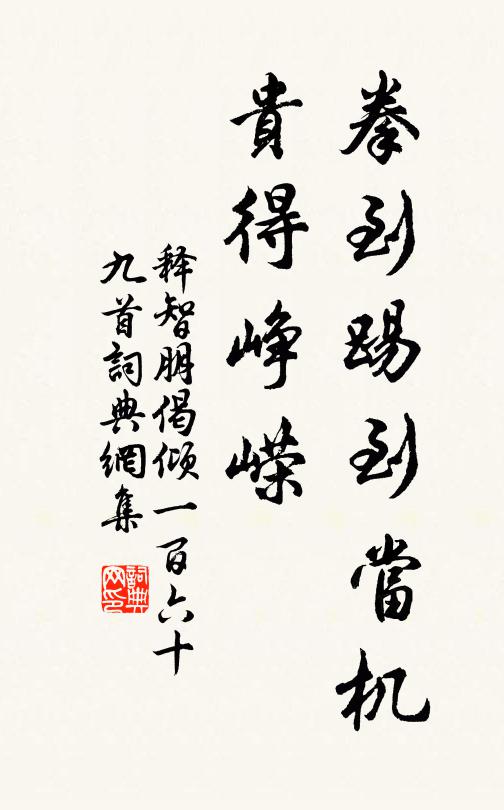 拳到踢到當机
貴得崢嶸
释智朋偈倾一百六十
九首詞典網集
詞典
网印